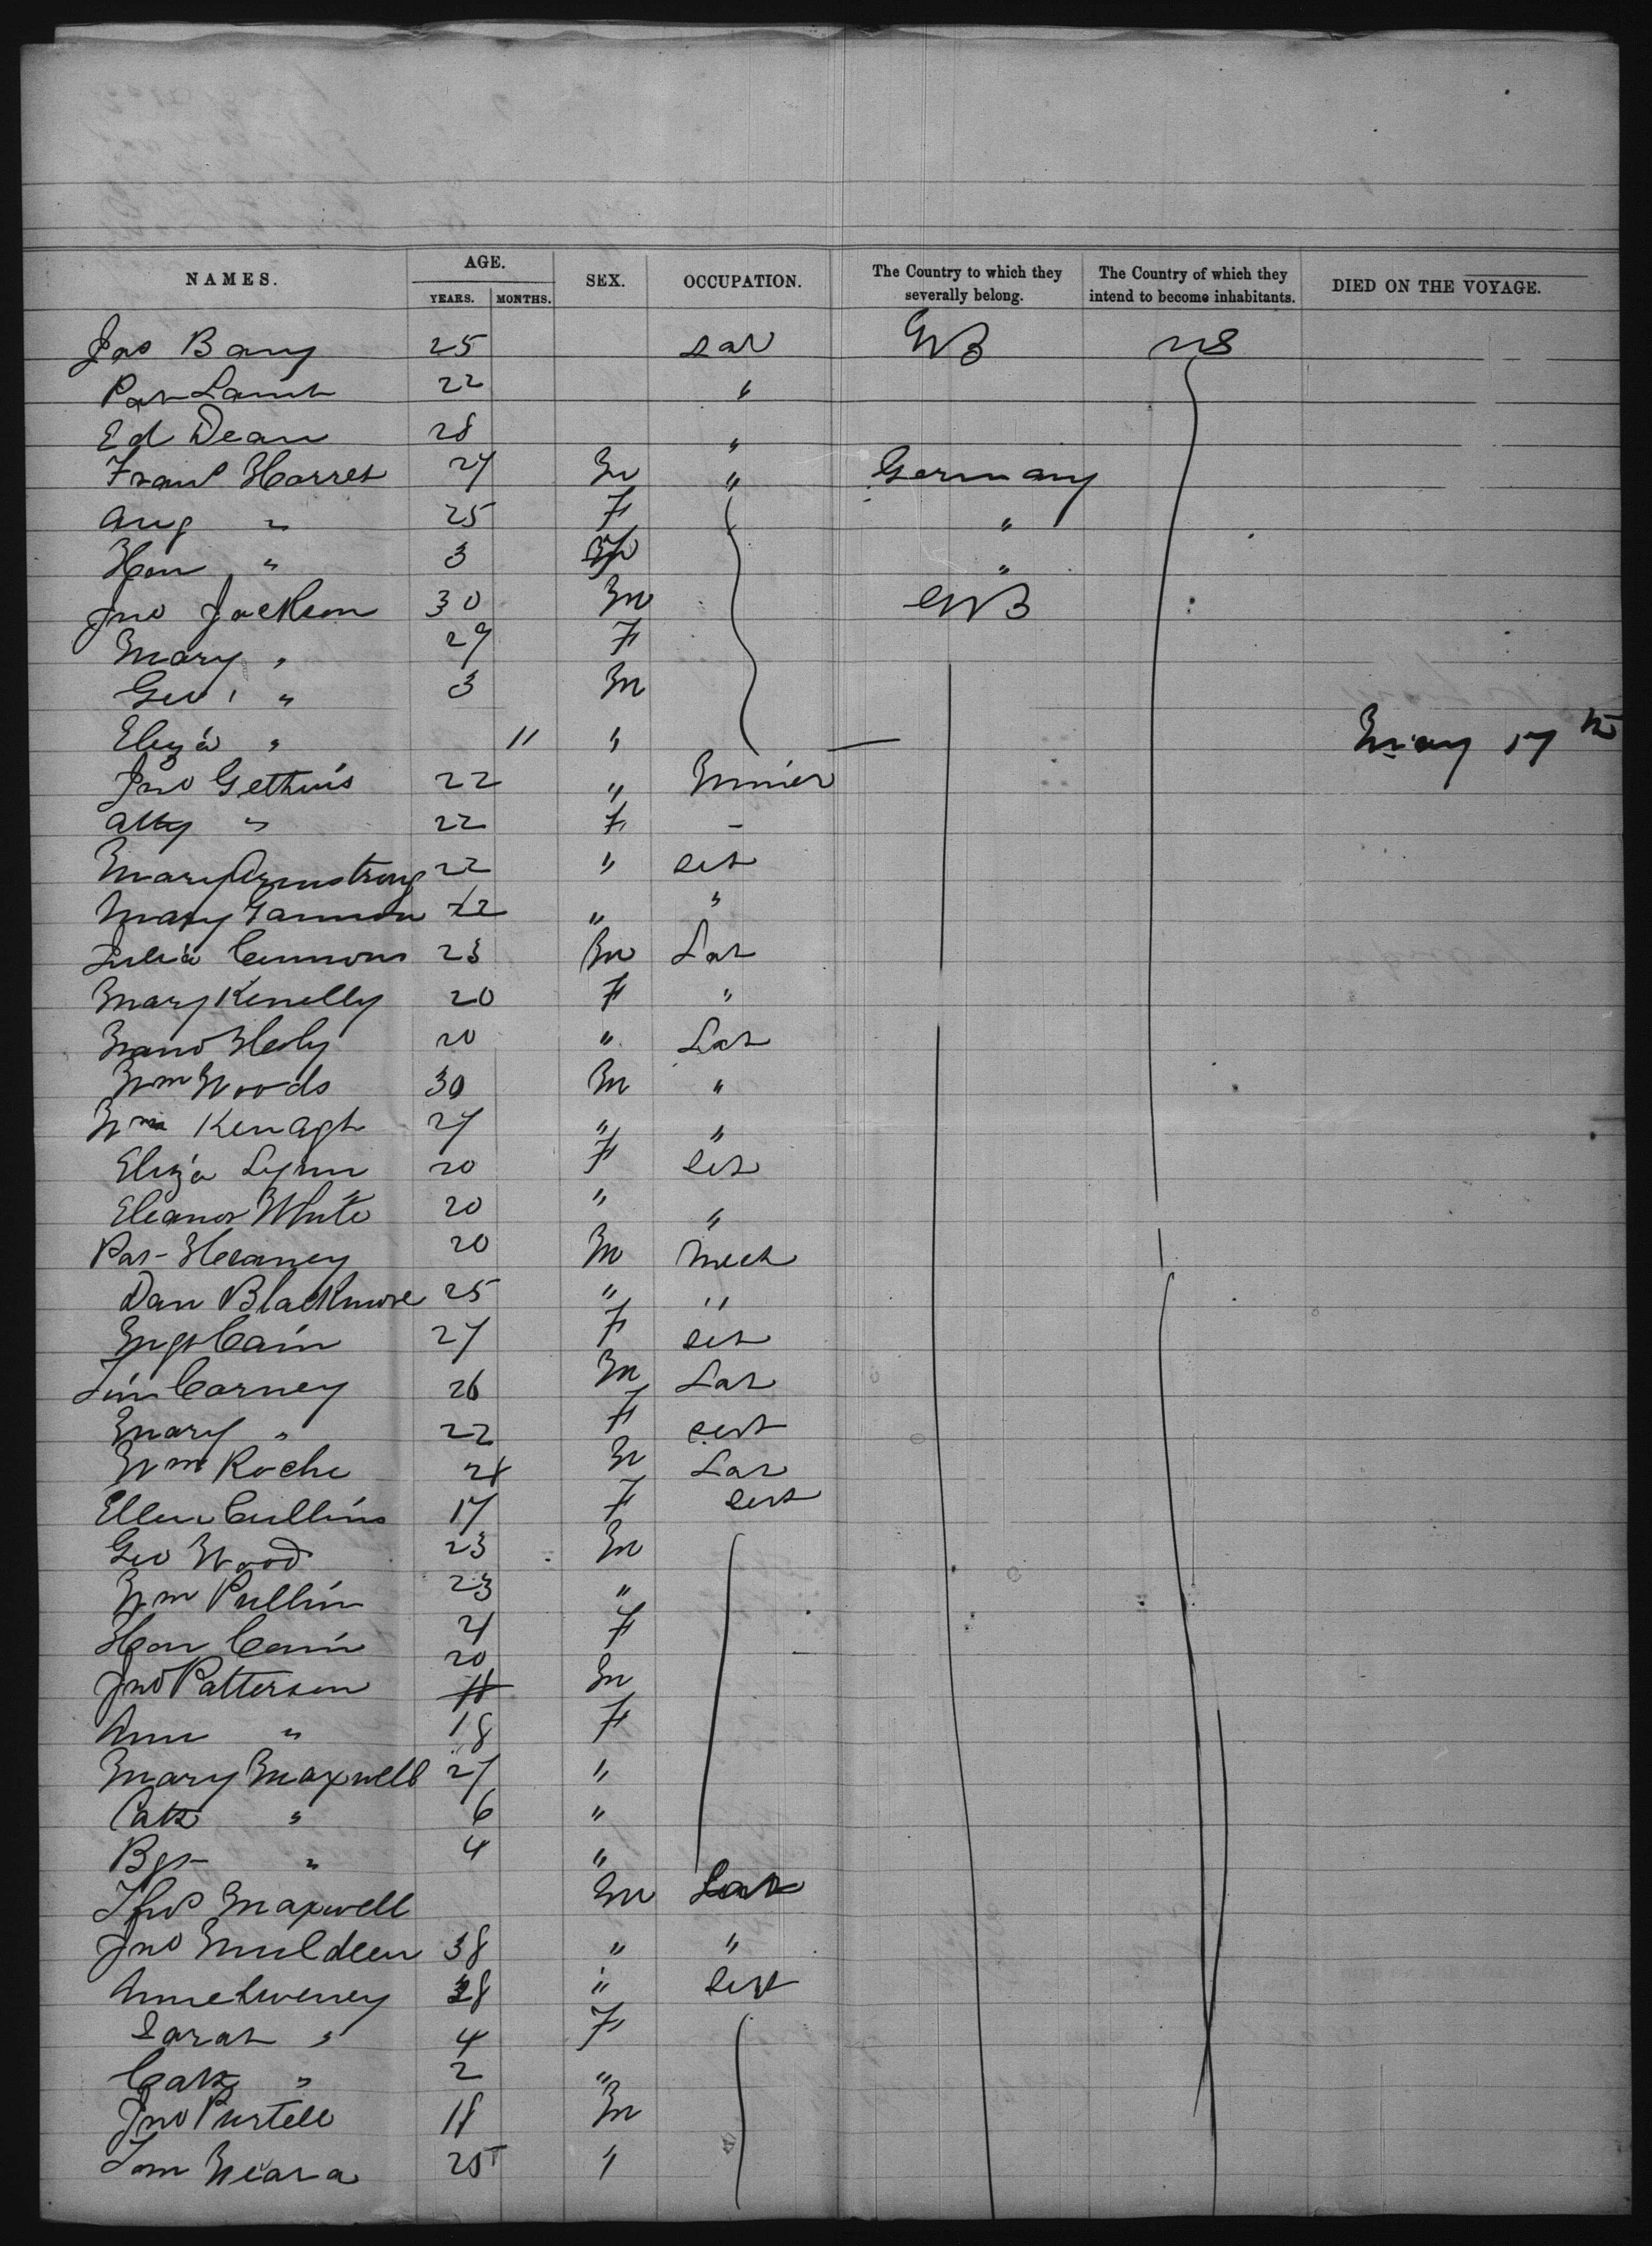 NAMES. AGE. SEX. OCCUPATION. The Country to which they severally belong. The Country of which they intend to become inhabitants. DIED ON THE VOYAGE.
YEARS. MONTHS.
Jas Barry 25 Lab GB US
Pat Lamb 22 "
Ed Dean 28 "
Franz Harres 27 M " Germany
Aug " 25 F "
Han " 3 "
Jno Jackson 30 M GB
Mary " 29 F
Geo " 3 M
Eliza " 11 " May 17th
Jno Gethins 22 " Miner
" 22 F -
Mary Armstrong 22 " Sert
Mary Gannon 22 " "
Julia Cummons 23 M Lab
Mary Kenelly 20 F "
Healy 20 " Lab
Wm Woods 30 M "
Wm Kenagh 27 " "
Eliza Lynn 20 F Sert
Eleanor White 20 " "
Pat Heaney 20 M Mech
Dan Blackmore 25 " "
Mgt Cain 27 F Sert
Tim Carney 26 M Lab
Mary " 22 F Sert
Wm Roche 21 M Lab
Ellen Cullins 17 F Sert
Geo Wood 23 M
Wm Pullin 23 "
Han Cain 21 F
Jno Patterson 20 M
Ann " 18 F
Mary Maxwell 27 "
Cath " 6 "
Bgt " 4 "
Thos Maxwell M Lab
Jno Muldeen 38 " "
Anne Sweney 28 " Sert
Sarah " 4 F
Cath " 2 "
Jno Purtell 18 M
Tom Meara 25 "